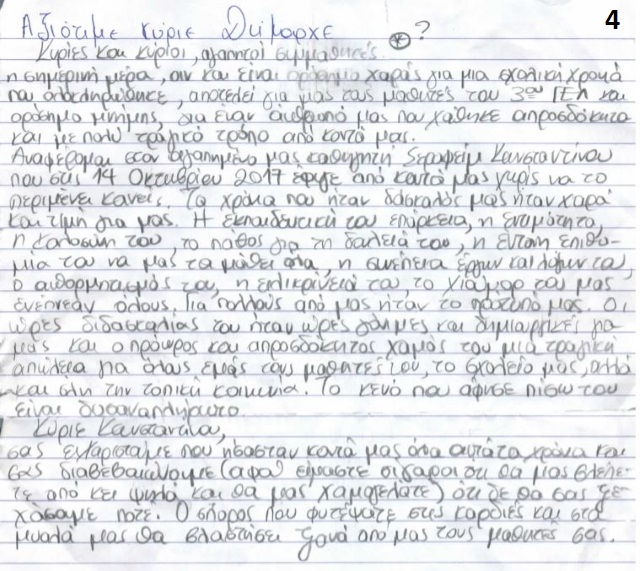 Αξιότιμε κύριε Δήμαρχε ?
4
Κυρίες και κύριοι, αγαπητοί συμμαθητές
η σημερινή μέρα, αν και είναι ορόσημο χαράς για μια σχολική χρονιά
που ολοκληρώθηκε, αποτελεί για μας τους μαθητές του 3ου ΓΕΛ και
ορόσημο μνήμης, για έναν άνθρωπό μας που χάθηκε απροσδόκητα
και με πολύ τραγικό τρόπο από κοντά μας.
Αναφέρομαι στον αγαπημένο μας καθηγητή Σεραφείμ Κωνσταντίνου
που στις 14 Οκτωβρίου 2017 έφυγε από κοντά μας χωρίς να το
περιμένει κανείς. Τα χρόνια που ήταν δάσκαλός μας ήταν χαρά
και τιμή για μας. Η εκπαιδευτική του επάρκεια, η εντιμότητα,
η καλοσύνη του, το πάθος για τη δουλειά του, η έντονη επιθυ-
μία του να μας τα μάθει όλα, η συνέπεια έργων και λόγων του,
ο αυθορμητισμός του, η ειλικρίνειά του, το χιούμορ του μας
ενέπνεαν όλους. Για πολλούς από μας ήταν το πρότυπό μας. Οι
ώρες διδασκαλίας του ήταν ώρες γόνιμες και δημιουργικές για
μας και ο πρόωρος και απροσδόκητος χαμός του μια τραγική
απώλεια για όλους εμάς τους μαθητές του, το σχολείο μας, αλλά
και όλη την τοπική κοινωνία. Το κενό που άφησε πίσω του
είναι δυσαναπλήρωτο.
Κύριε Κωνσταντίνου,
σας ευχαριστούμε που ήσασταν κοντά μας όλα αυτά τα χρόνια και
σας διαβεβαιώνουμε (αφού είμαστε σίγουροι ότι θα μας βλέπε-
τε από κει ψηλά και θα μας χαμογελάτε) ότι δε θα σας ξε-
χάσουμε ποτέ. Ο σπόρος που φυτέψατε στις καρδιές και στα
μυαλά μας θα βλαστήσει ξανά από μας τους μαθητές σας.